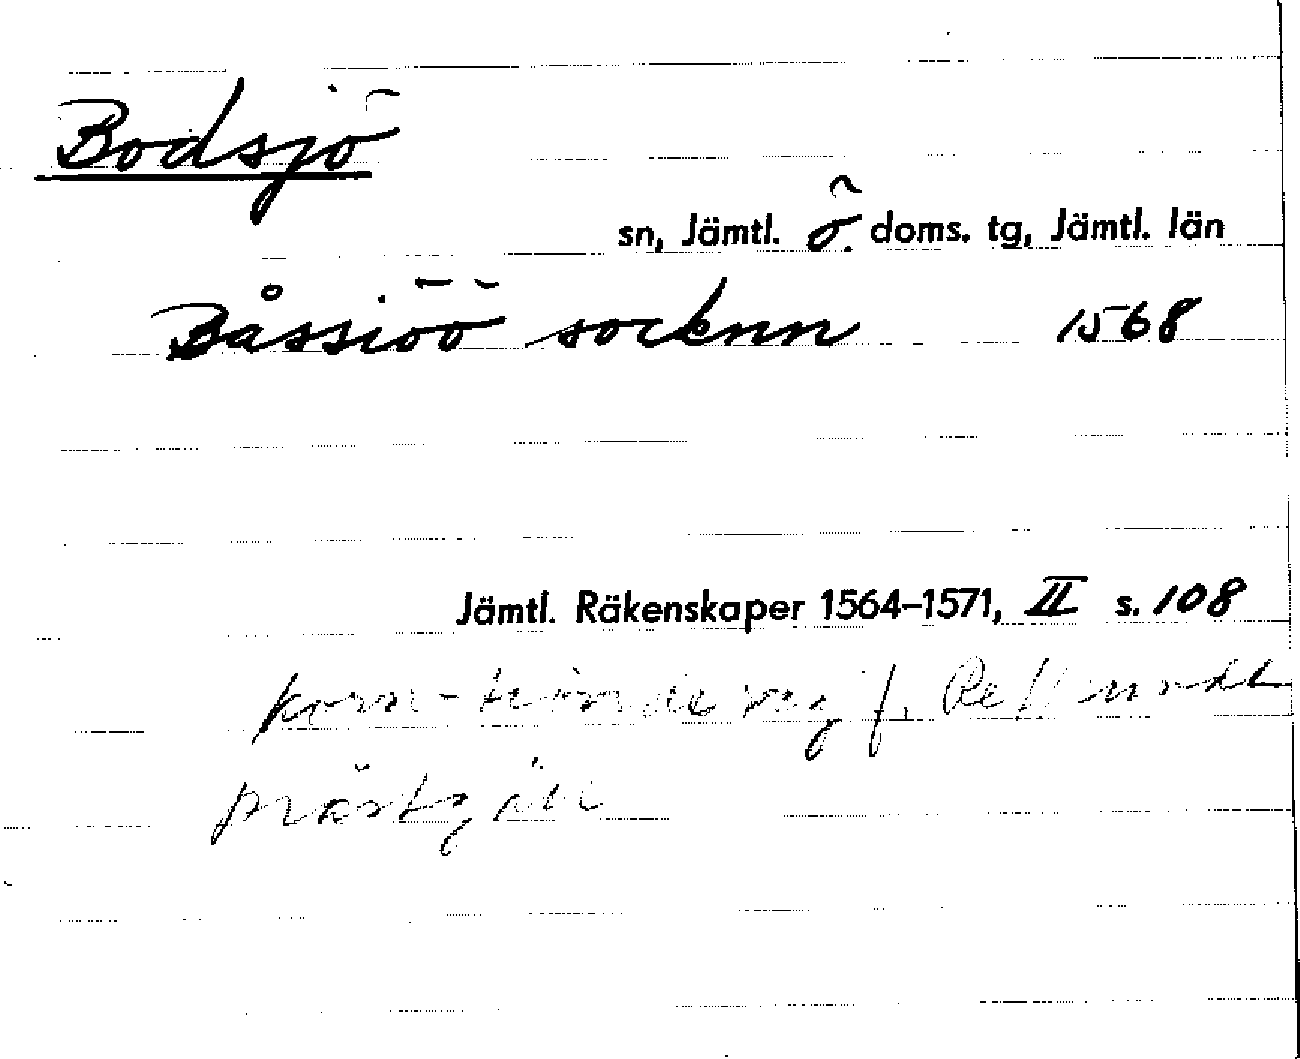 Bodsjö
sn, Jämtl. ö. doms. tg, Jämtl. län
Båssiöö socknn 1568
Jämtl. Räkenskaper 1564–1571, II s. 108
korn-tionde reg f. Refsundt
prästgäll